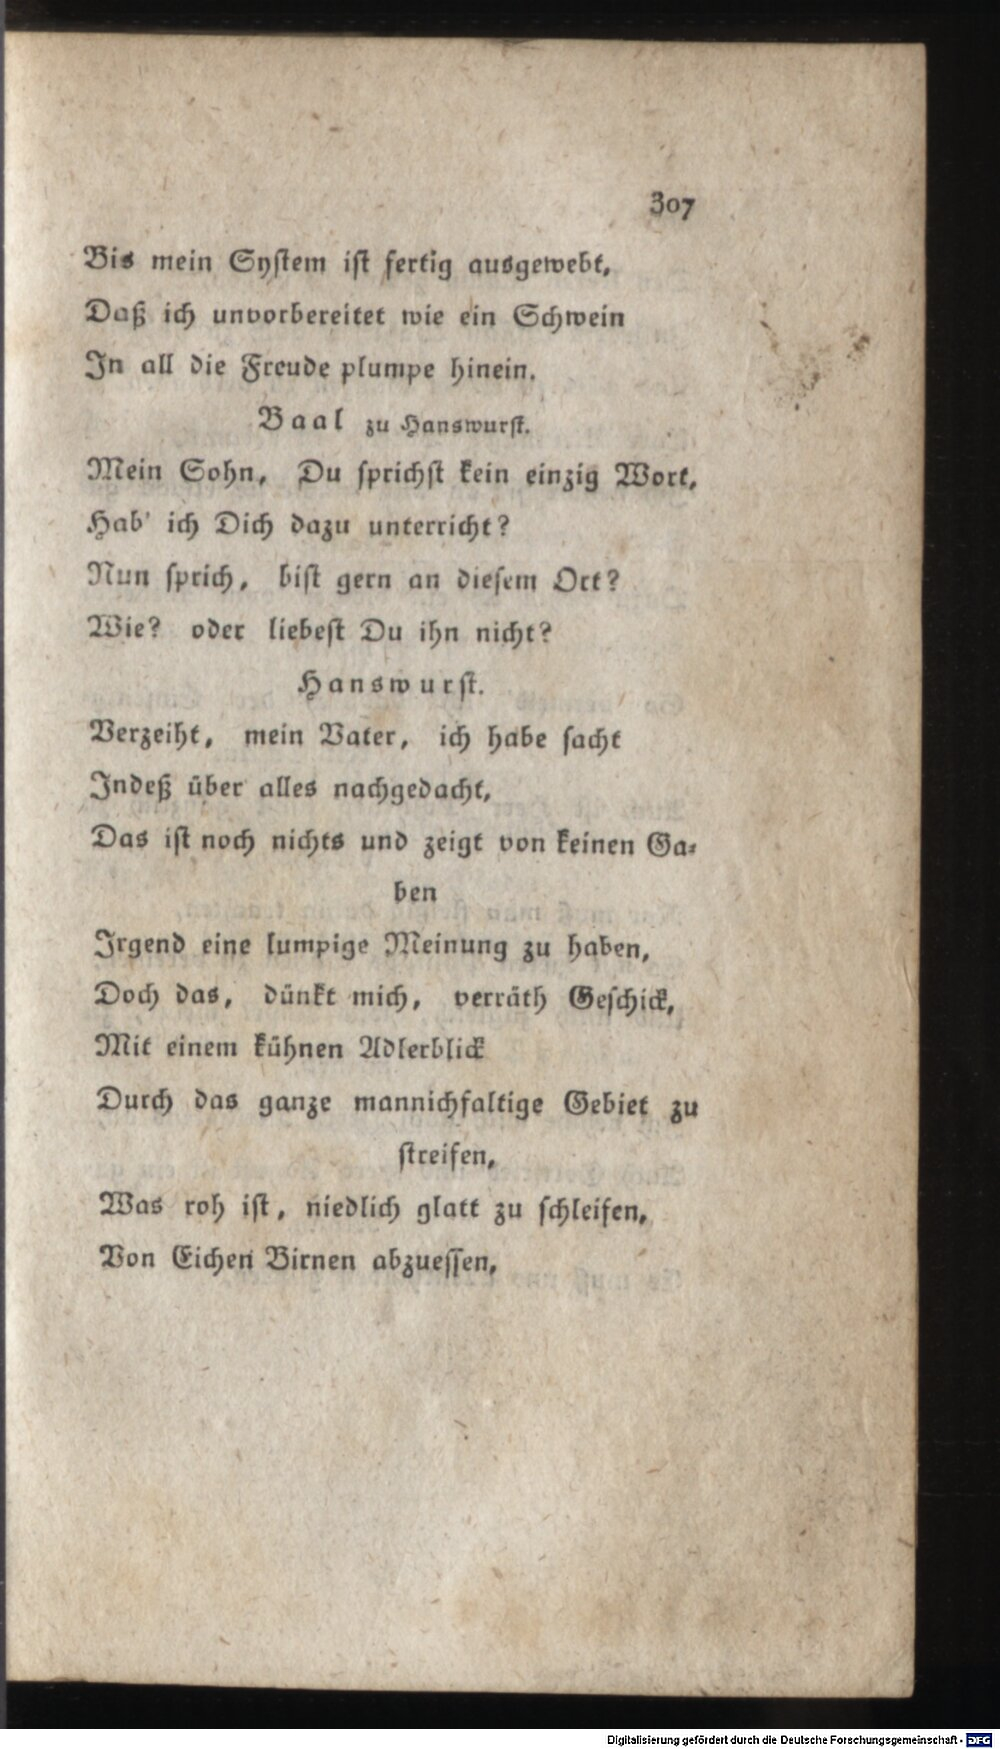 307
Bis mein Syſtem iſt fertig ausgewebt,
Daß ich unvorbereitet wie ein Schwein
In all die Freude plumpe hinein.
Baal zu Hanswurſt.
Mein Sohn, Du ſprichſt kein einzig Wort,
Hab' ich Dich dazu unterricht?
Nun ſprich, biſt gern an dieſem Ort?
Wie? oder liebeſt Du ihn nicht?
Hanswurſt.
Verzeiht, mein Vater, ich habe ſacht
Indeß über alles nachgedacht,
Das iſt noch nichts und zeigt von keinen Ga⸗
ben
Irgend eine lumpige Meinung zu haben,
Doch das, dünkt mich, verräth Geſchick,
Mit einem kühnen Adlerblick
Durch das ganze mannichfaltige Gebiet zu
ſtreifen,
Was roh iſt, niedlich glatt zu ſchleifen,
Von Eichen Birnen abzueſſen,
Digitalisierung gefördert durch die Deutsche Forschungsgemeinschaft - DFG